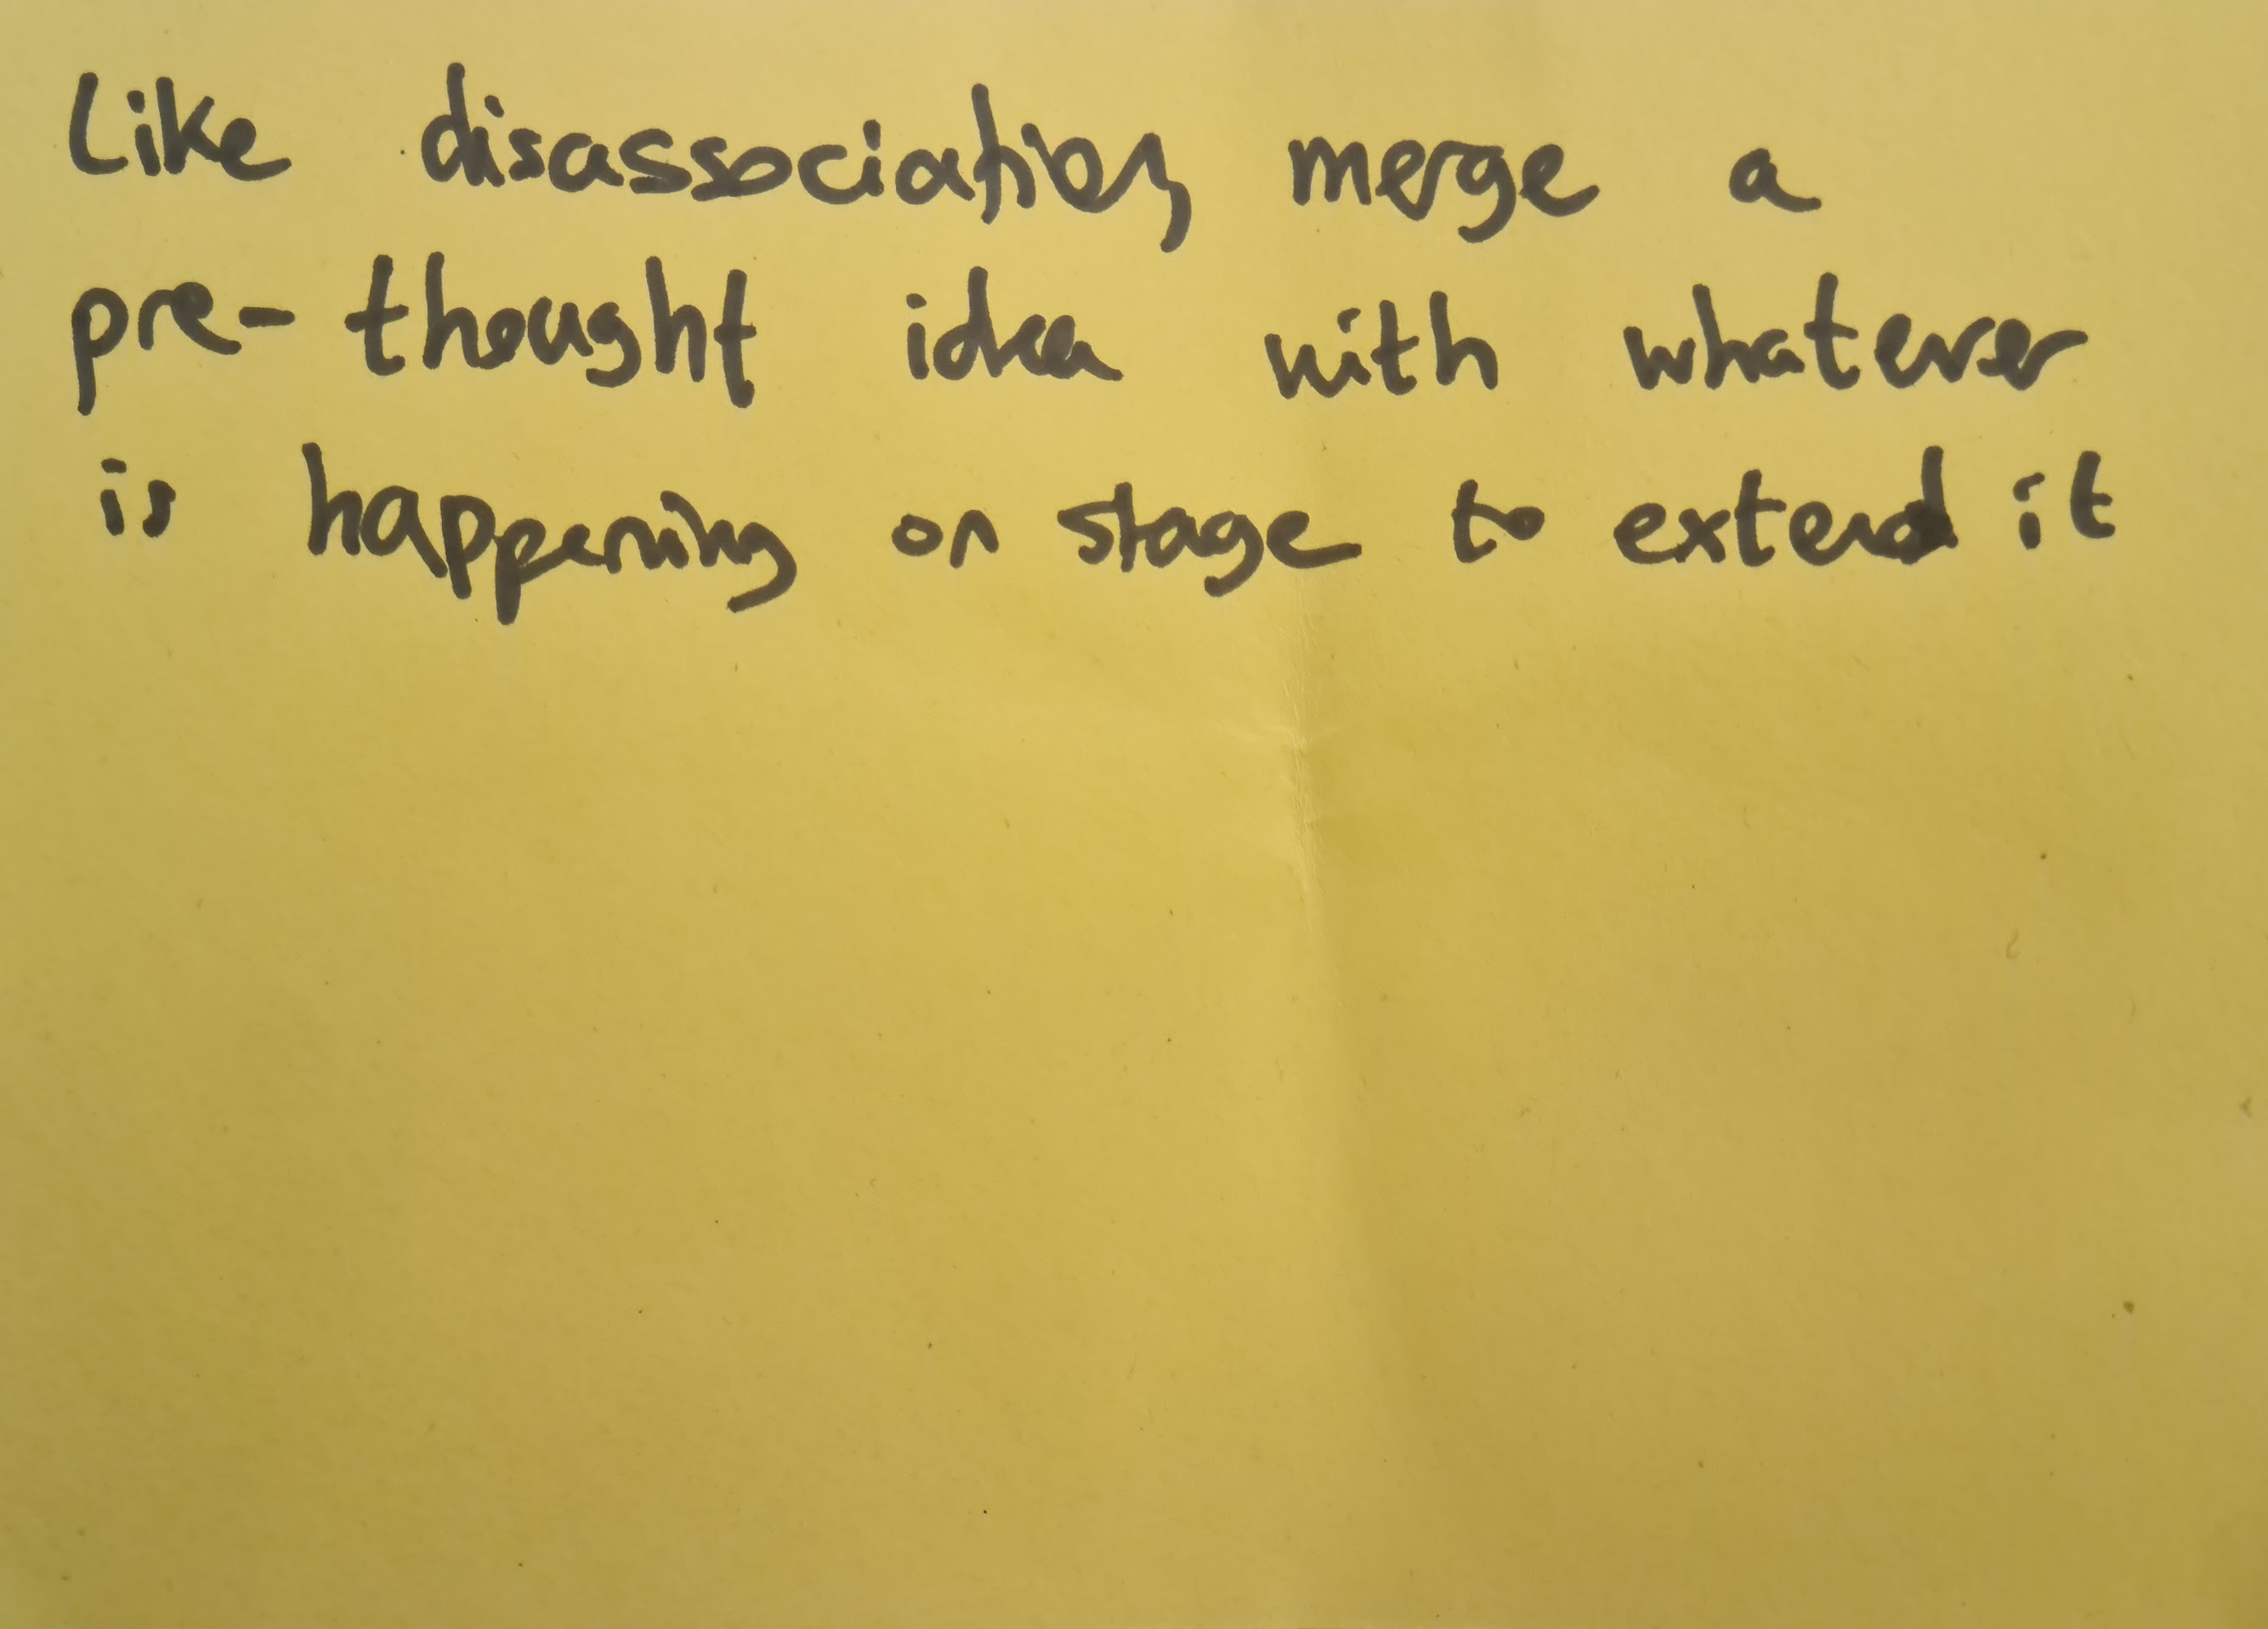 Like disassociation, merge a
pre-thought idea with whatever
is happening on stage to extend it